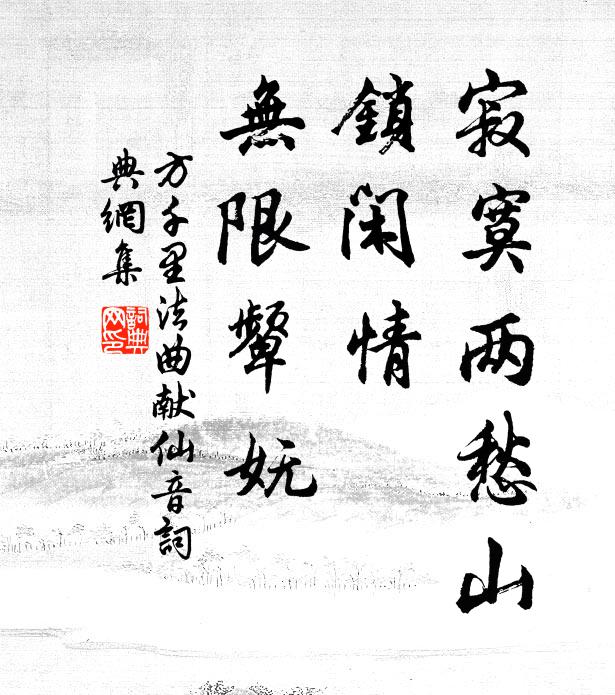 寂寞两愁山
鎖閑情
無限顰妩
方千里法曲献仙音詞
典網集
詞典
网印